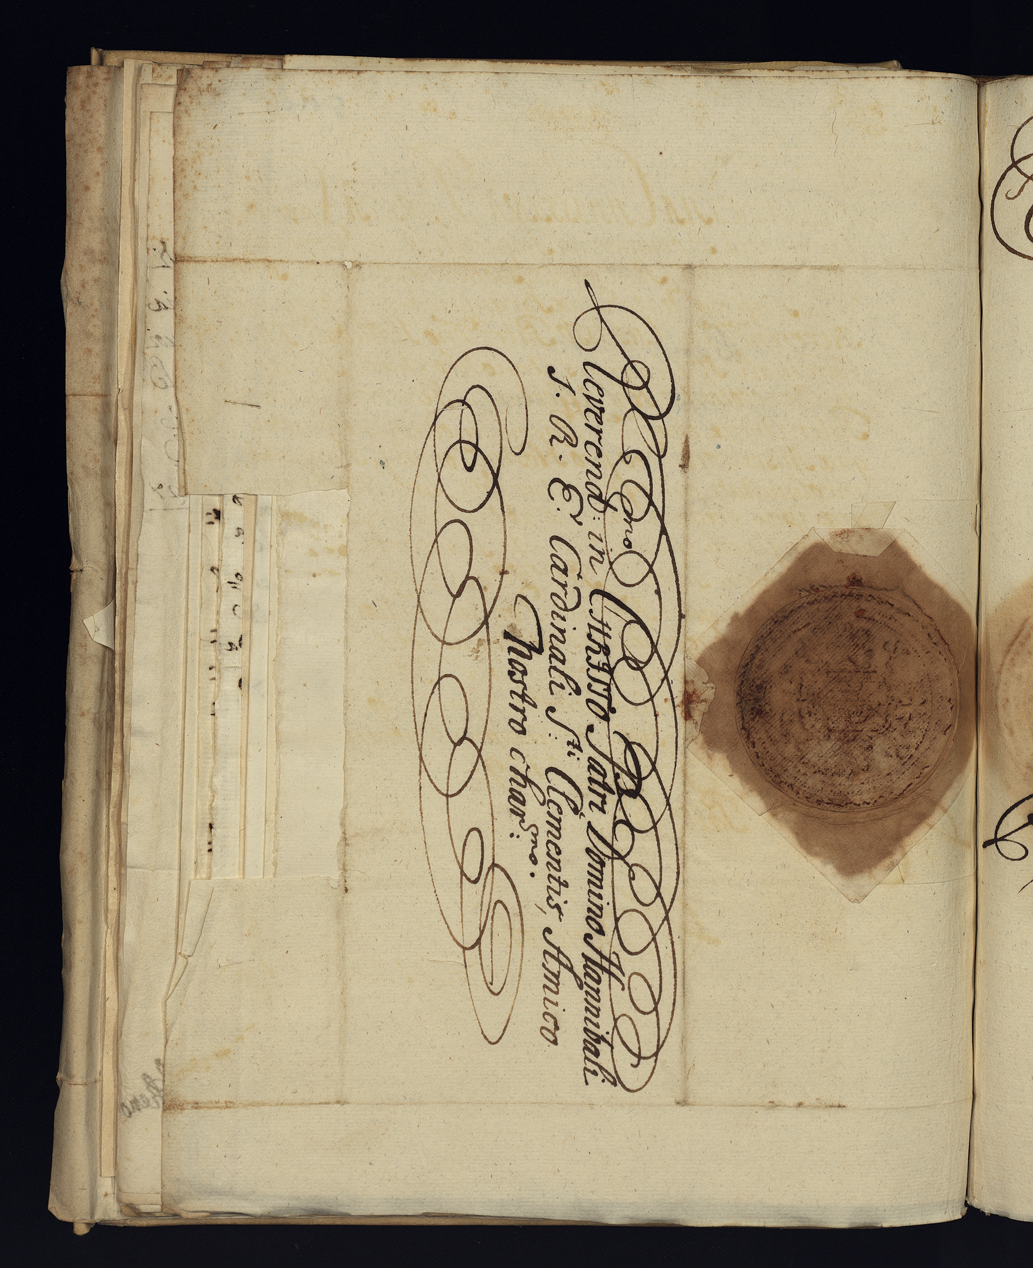 Reverend:ᵐᵒ in CHRISTO Patri Domino Hannibali
S. R. E. Cardinali S:ᵗⁱ Clementis, Amico
Nostro char:ᵐᵒ.